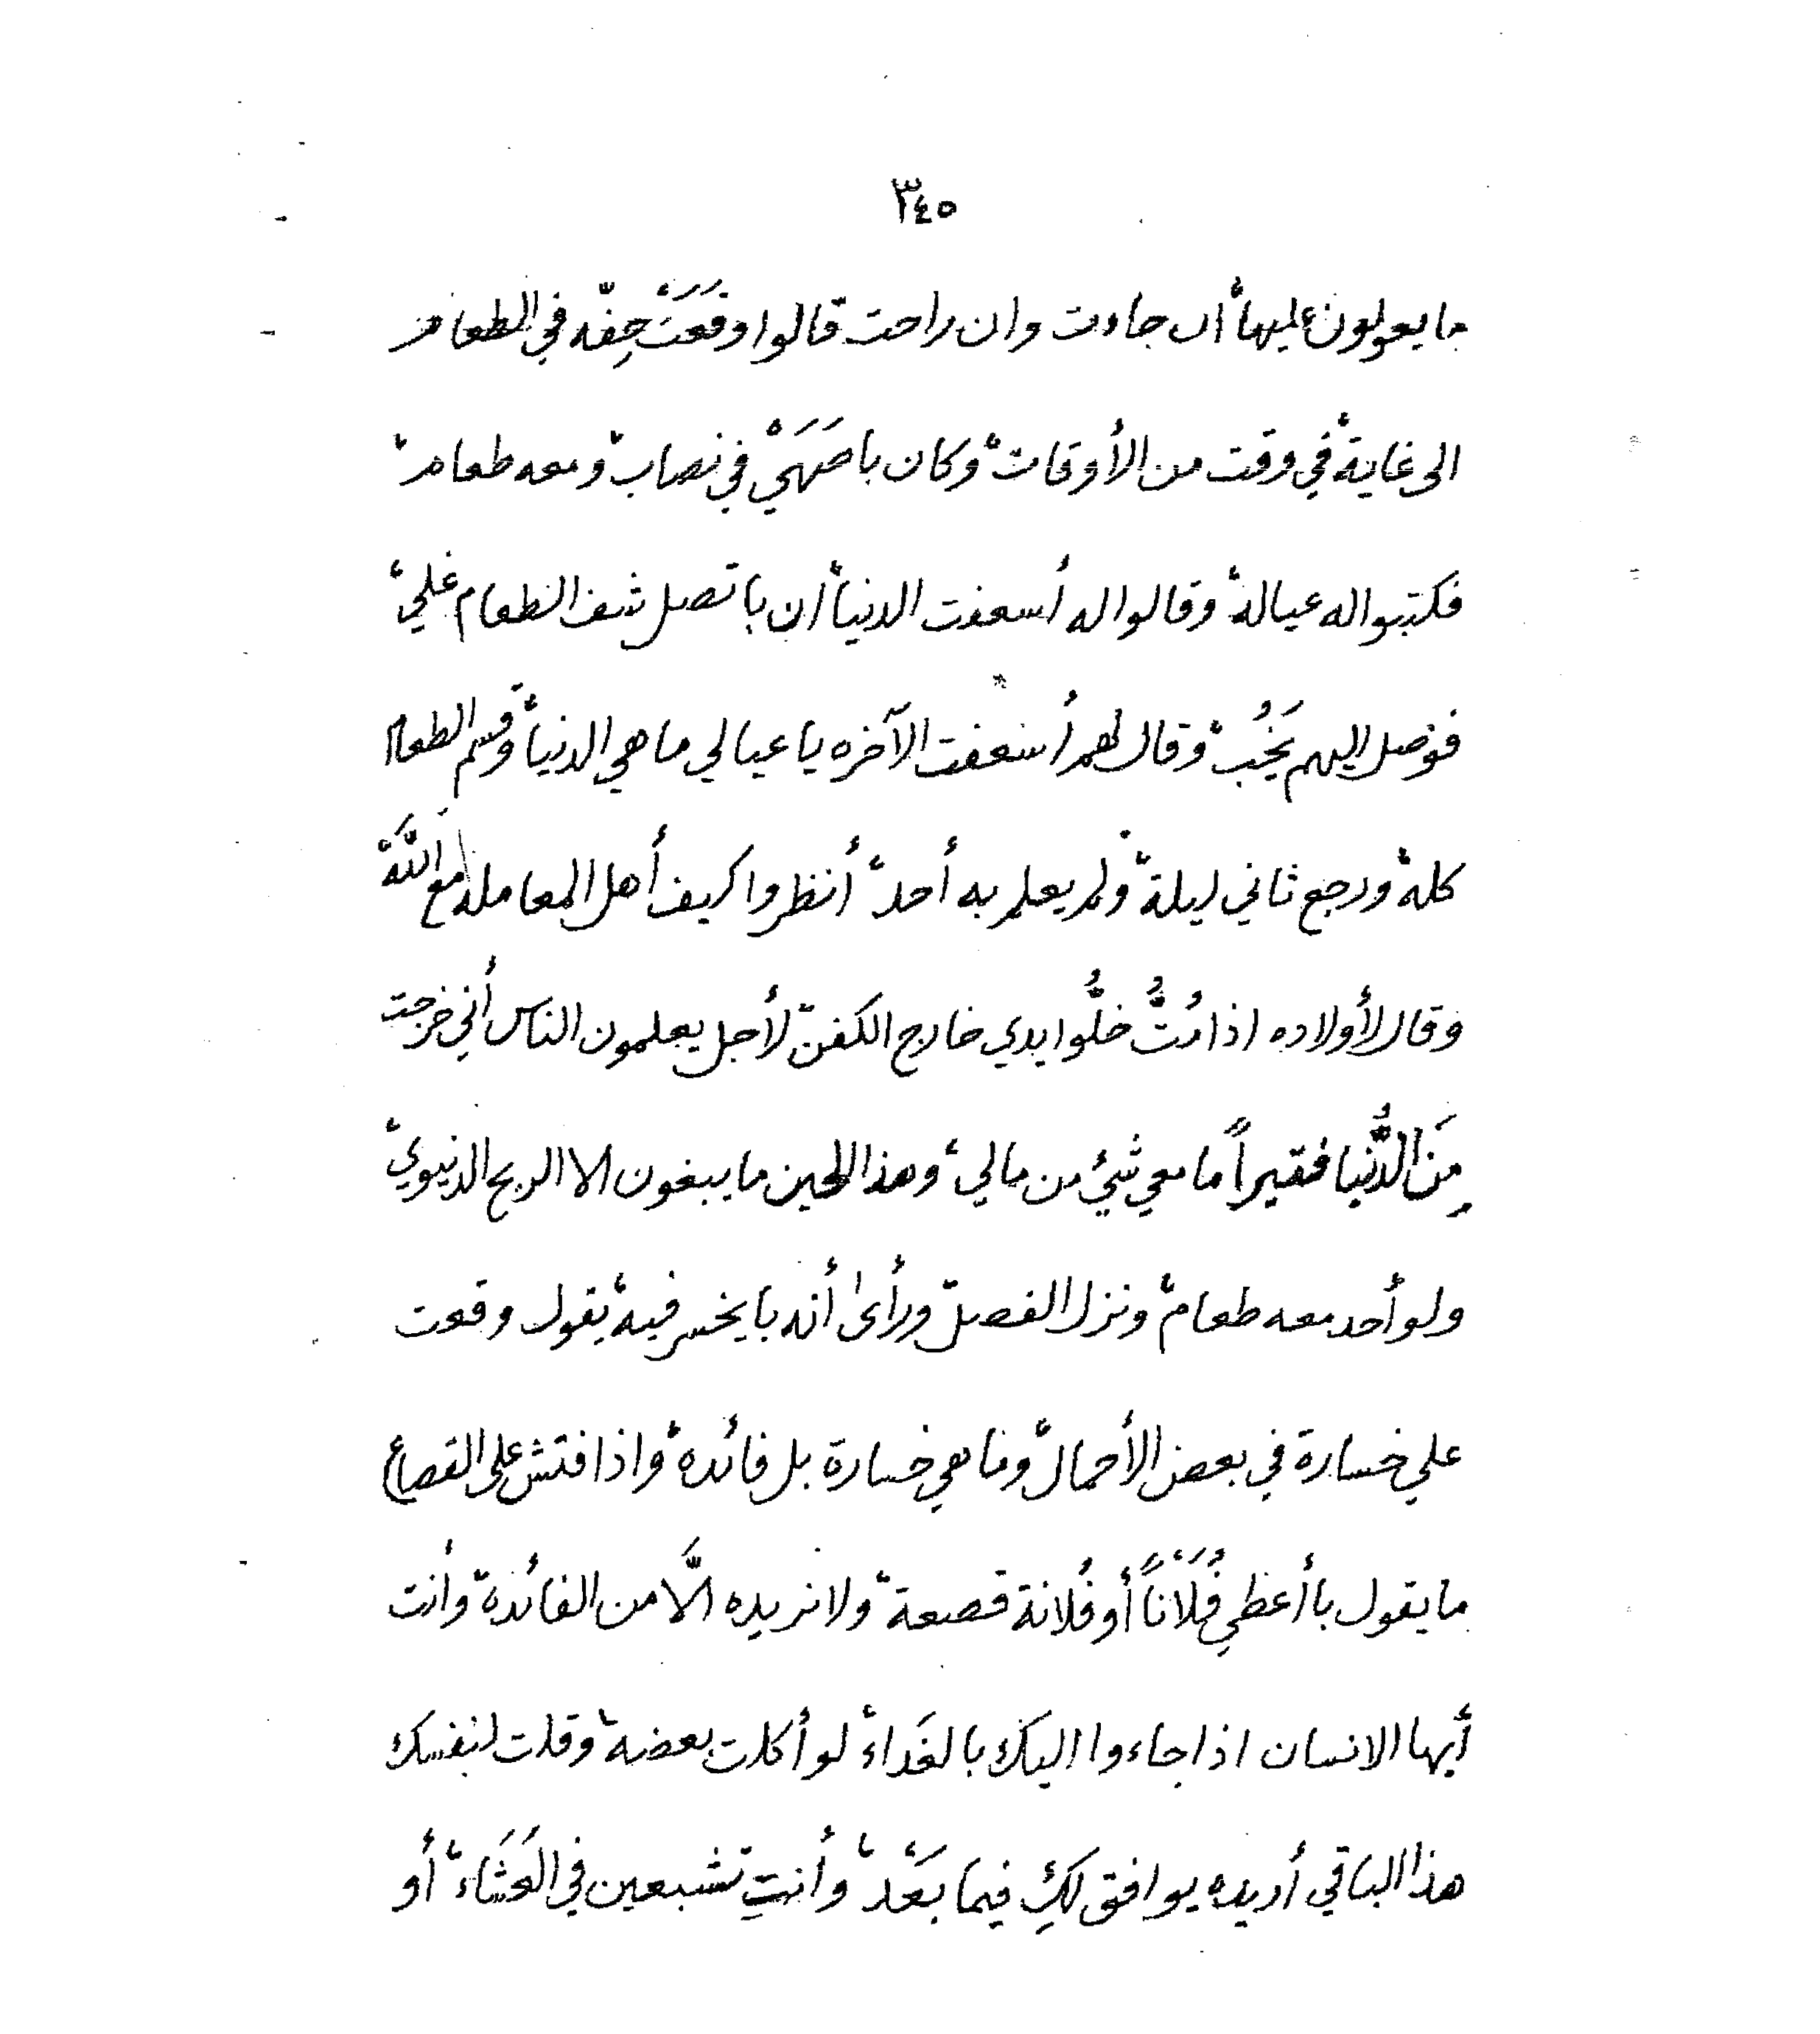 ٣٤٥
ما يعولون عليها، ان جاءت وان راحت، قالوا وَقَعَتْ خِفّه في الطعام
الى غاية، في وقت من الأوقات، وكان باصَهَيْ في نصاب، ومعه طعام،
فكتبوا له عياله، وقالوا له أسعفت الدنيا، ان با تصل شف الطعام غلي،
فوصل اليهم يَخُبْ، وقال لهم أسعفت الآخره يا عيالي ما هي الدنيا، وقسم الطعام
كله، ورجع ثاني ليلة، ولم يعلم به أحد، أنظروا كيف أهل المعامله مع اللَّه،
وقال لأولاده اذا مُتُّ خلُّوا يدي خارج الكفن، لأجل يعلمون الناس أني خرجت
مِنَ الدُّنيا فقيراً ما معي شيء من مالي، وهذا الحين ما يبغون الا الربح الدنيوي،
ولو أحد معه طعام، ونزل الفصل، ورأى أنه با يخسر فيه، يقول وقعت
علي خسارة في بعض الأحمال، وما هي خسارة بل فائده، واذا فتش على القصاع
ما يقول با أعطي فُلَاناً أو فُلانة قصعة، ولا نريده الَّا من الفائدة، وأنت
أيها الانسان اذا جاءوا اليك بالغَداء، لو أكلت بعضه، وقلت لنفسك
هذا الباقي أريده يوافق لكِ فيما بَعَدْ، وأنتِ تشبعين في العَشَاء، أو